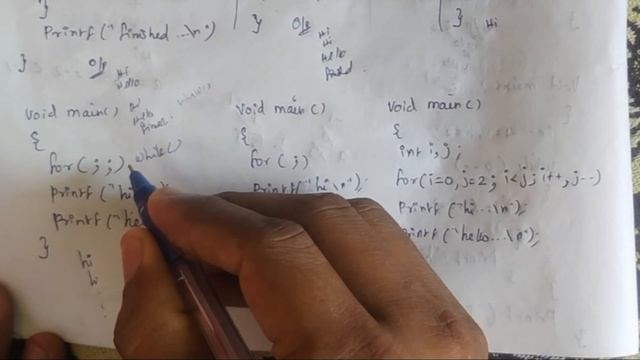 }
Printf("finished...\n")
}
O/p
Hi
Hello
}
O/p
Hi
Hi
Hello
}
Hi
Void main()
{
for( ; ; )
while()
Printf("hi
Printf("he
}
hi
hi
Void main()
{
for( ; )
Printf("hi\n");
Void main()
{
int i,j;
for(i=0,j=2; i<j; i++, j--)
Printf("hi...\n");
Printf("hello...\n");